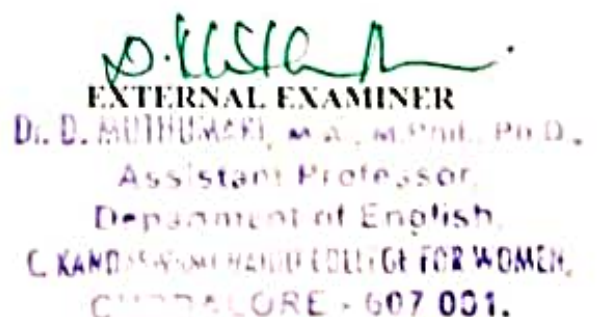 EXTERNAL EXAMINER
Dr. D. MUTHUMARI, M.A., M.Phil., Ph.D.,
Assistant Professor,
Department of English,
C. KANDASWAMI NAIDU COLLEGE FOR WOMEN,
CUDDALORE - 607 001.